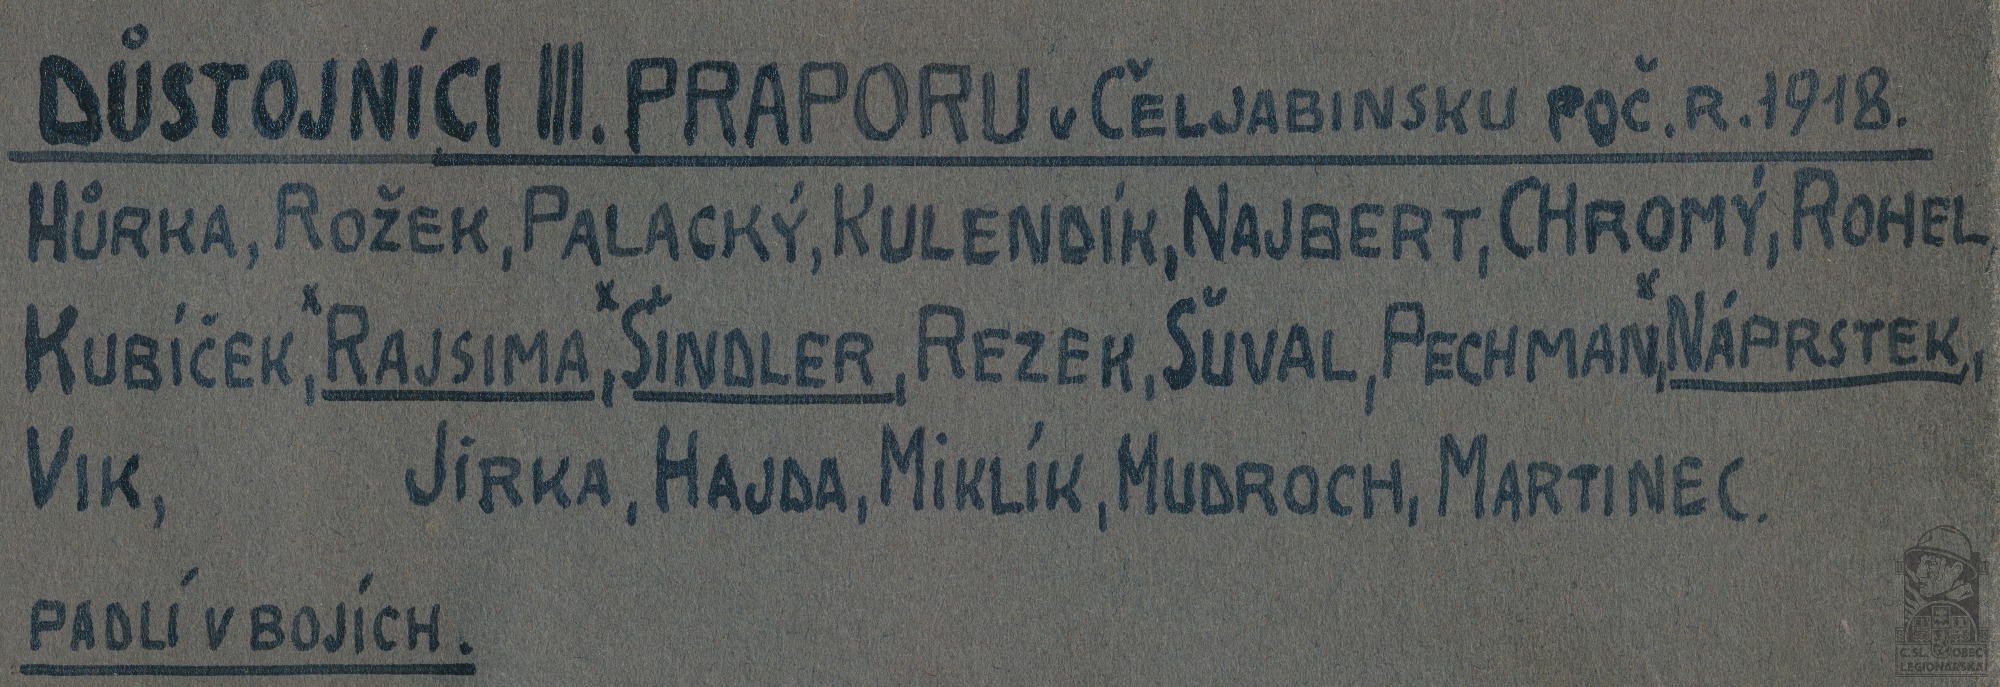 DŮSTOJNÍCI III. PRAPORU v ČELJABINSKU POČ. R. 1918.
HŮRKA, ROŽEK, PALACKÝ, KULENDÍK, NAJBERT, CHROMÝ, ROHEL,
KUBÍČEK, ˣRAJSIMA, ˣŠINDLER, REZEK, ŠŮVAL, PECHMAN, ˣNÁPRSTEK,
VIK, JIRKA, HAJDA, MIKLÍK, MUDROCH, MARTINEC.
PADLÍ V BOJÍCH.
Č.SL. OBEC
LEGIONÁŘSKÁ